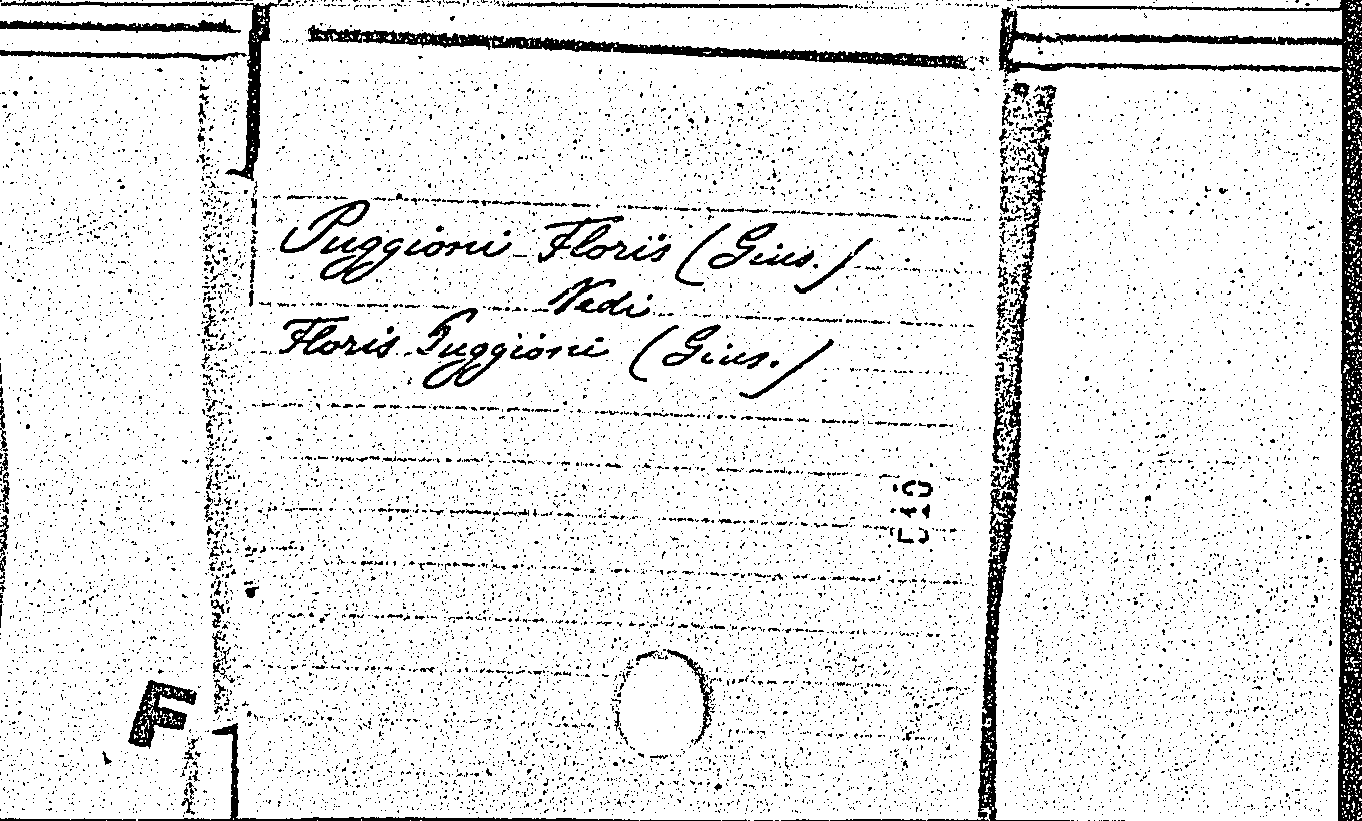 Puggioni Floris (Gius.)
Vedi
Floris Puggioni (Gius.)
F